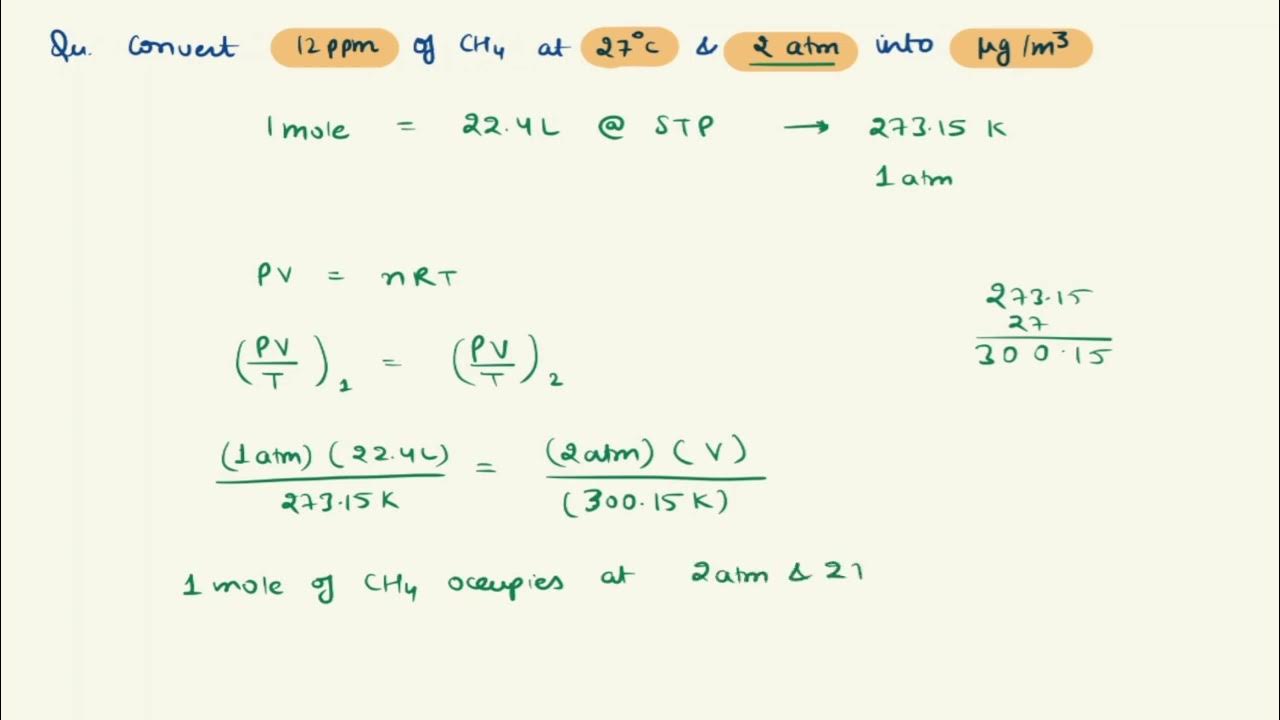 Qu. Convert 12 ppm of CH4 at 27°c & 2 atm into µg/m³
1 mole = 22.4L @ STP → 273.15 K
1 atm
PV = nRT
273.15
27
300.15
(PV/T)1 = (PV/T)2
(1atm) (22.4L) / 273.15 K = (2atm) (V) / (300.15 K)
1 mole of CH4 occupies at 2atm & 27